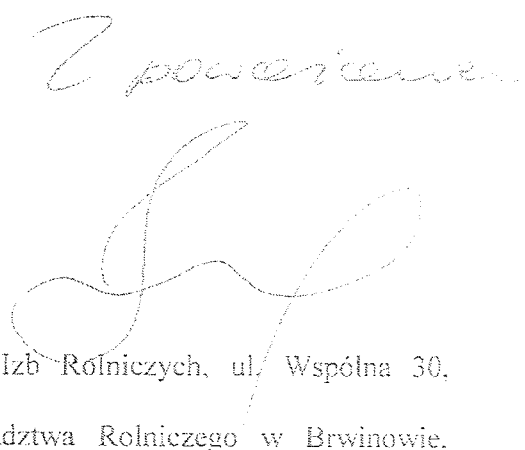 Z poważaniem
Izb Rolniczych, ul. Wspólna 30,
dztwa Rolniczego w Brwinowie,